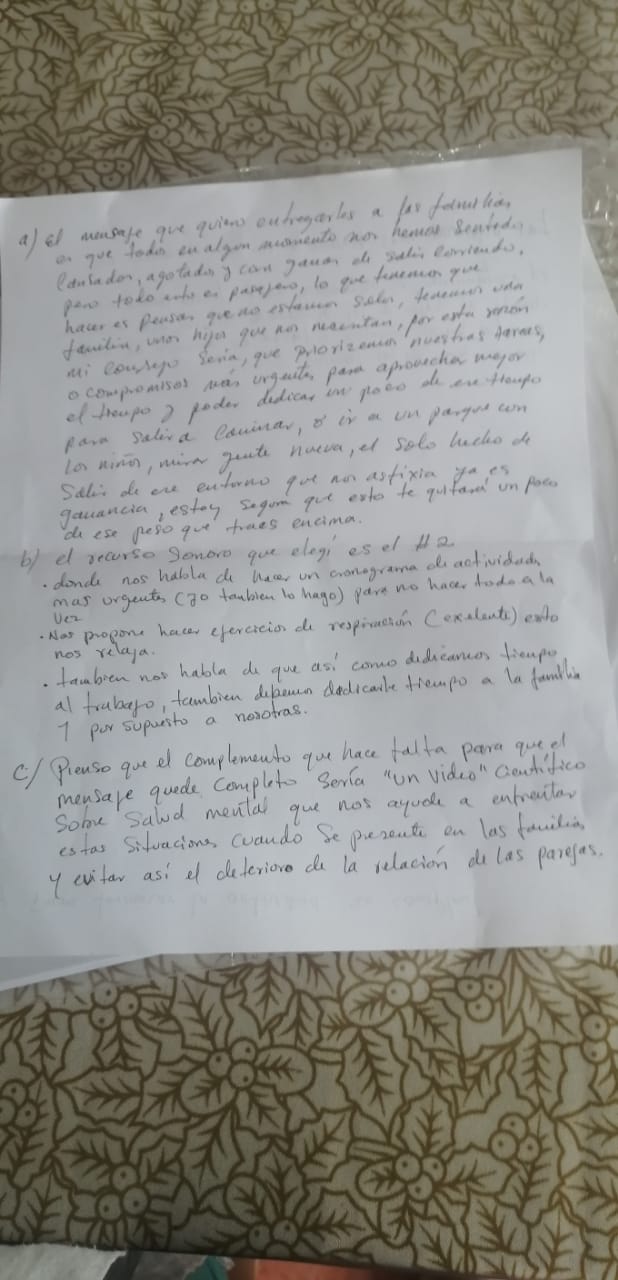 a) El mensaje que quiero entregarles a las familias,
es que todos en algun momento nos hemos sentido
Cansados, agotados y con ganas de salir corriendo,
pero todo esto es pasajero, lo que tenemos que
hacer es pensar que no estamos solos, tenemos una
familia, unos hijos que nos necesitan, por esta razón
mi consejo sería, que priorizemos nuestras tareas,
o compromisos más urgentes para aprovechar mejor
el tiempo y poder dedicar un poco de ese tiempo
para salir a Caminar, o ir a un parque con
los niños, mirar gente nueva, el solo hecho de
Salir de ese entorno que nos asfixia ya es
ganancia, estoy segura que esto te quitará un poco
de ese peso que traes encima.
b) el recurso Sonoro que elegí es el #2
. donde nos habla de hacer un cronograma de actividades
mas urgentes (yo tanbien lo hago) para no hacer todo a la
vez
. Nos propone hacer ejercicios de respiración (exelente) esto
nos relaja.
. tambien nos habla de que así como dedicamos tiempo
al trabajo, tambien debemos dedicarle tiempo a la familia
y por supuesto a nosotras.
C) Pienso que el complemento que hace falta para que el
mensaje quede Completo Sería "un video" Científico
Sobre Salud mental que nos ayude a enfrentar
estas Situaciones Cuando Se presente en las familias
y evitar así el deterioro de la relación de las parejas.